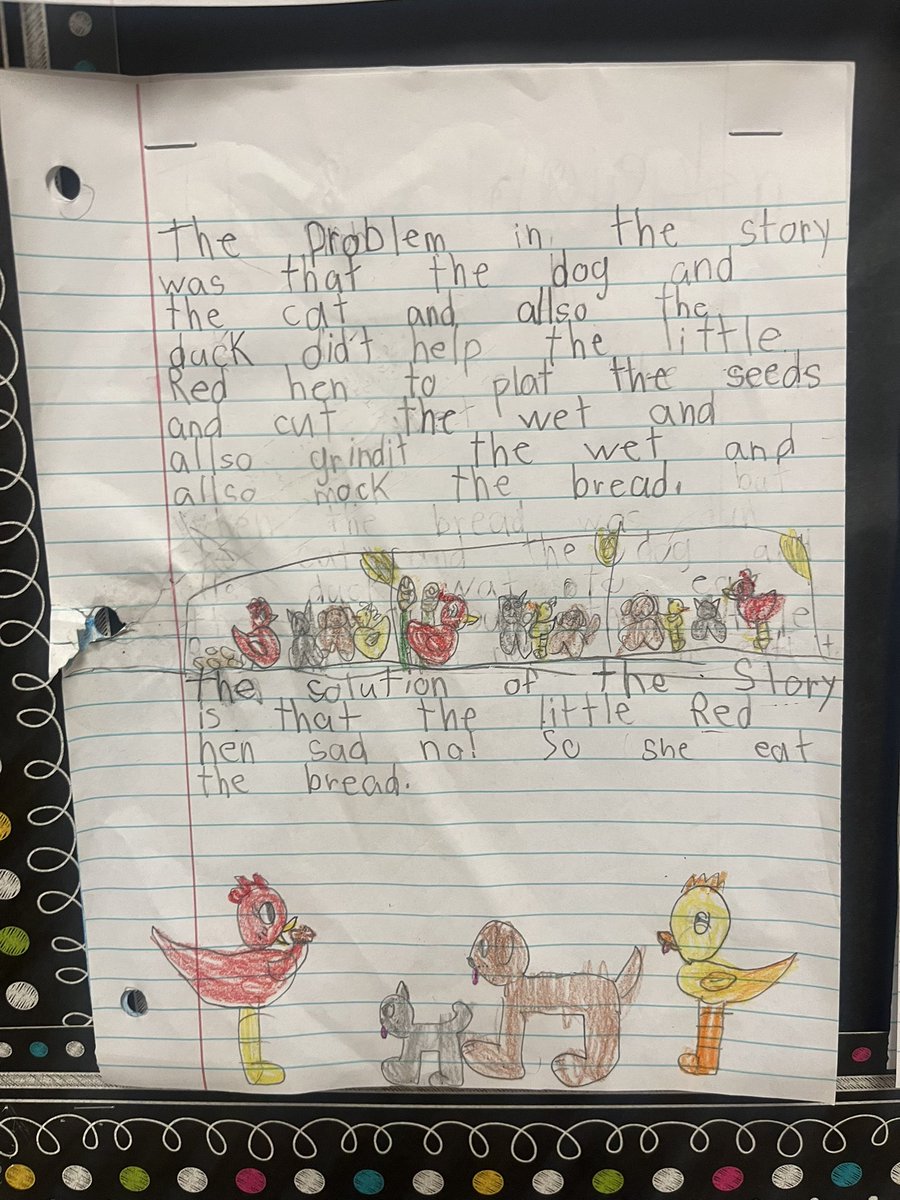 The problem in the story
was that the dog and
the cat and allso the
duck did't help the little
Red hen to plat the seeds
and cut the wet and
allso grindit the wet and
allso mock the bread. but
when the bread was
the dog
The solution of the Story
is that the little Red
hen sad no! So she eat
the bread.